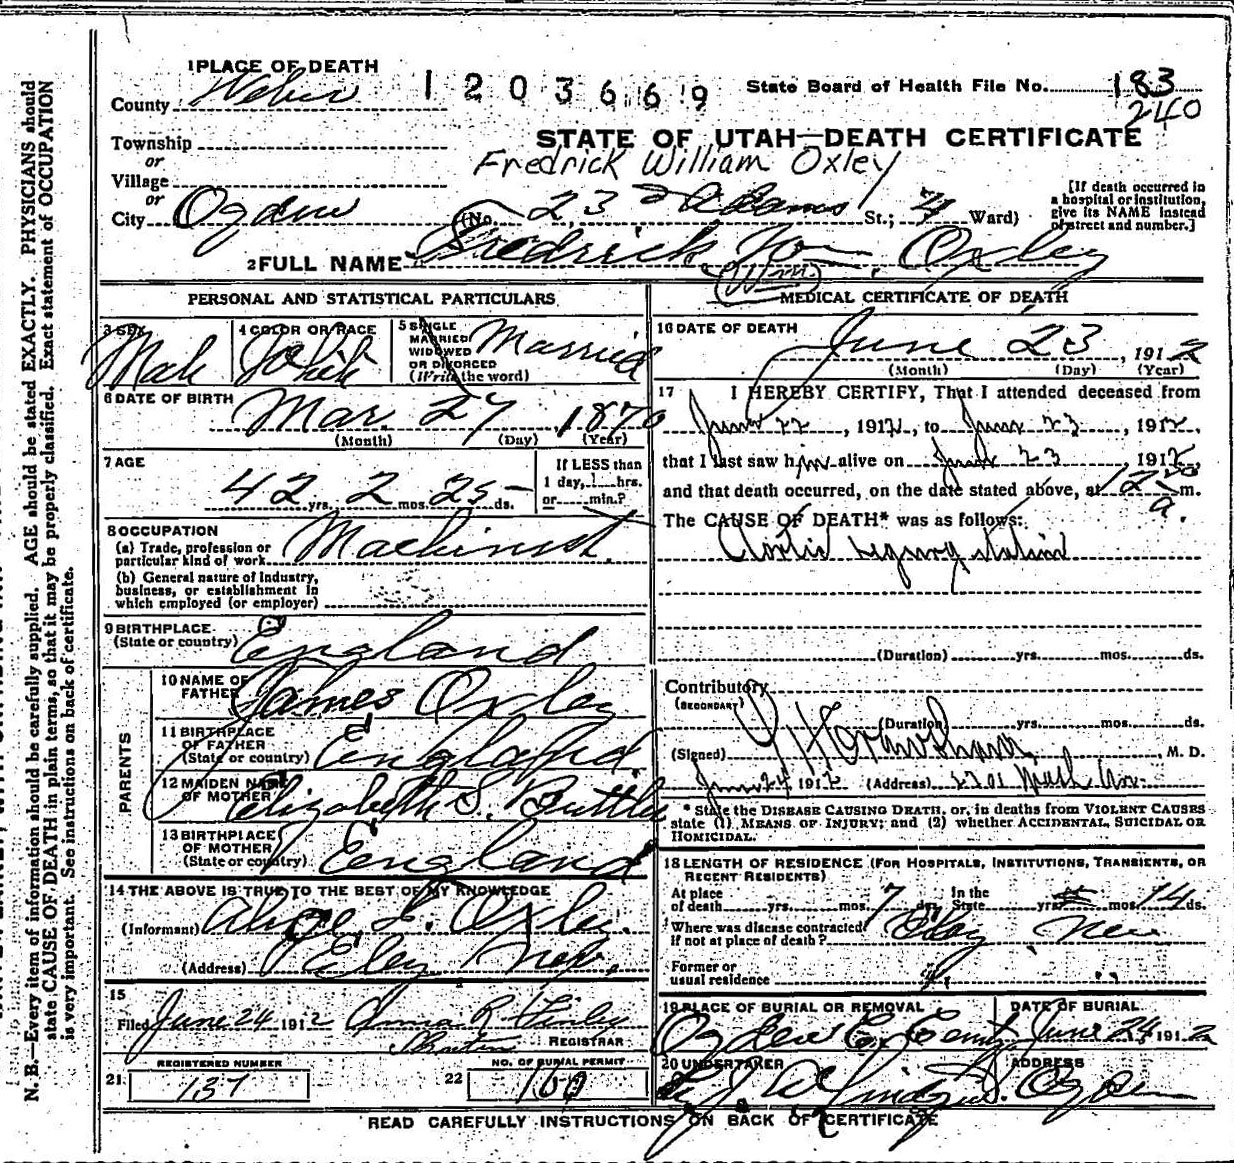 1 PLACE OF DEATH
County Weber 1203669 State Board of Health File No. 183
240
Township
or
Village
or
STATE OF UTAH—DEATH CERTIFICATE
Fredrick William Oxley
City Ogden (No. 23 Adams St.; 4 Ward)
[If death occurred in a hospital or institution, give its NAME instead of street and number.]
2 FULL NAME Fredrick Oxley
(Wm)
PERSONAL AND STATISTICAL PARTICULARS
3 SEX Male
4 COLOR OR RACE White
5 SINGLE MARRIED WIDOWED OR DIVORCED (Write the word) Married
6 DATE OF BIRTH Mar. 27, 1870
(Month) (Day) (Year)
7 AGE 42 yrs. 2 mos. 25 ds.
If LESS than 1 day, hrs. or min.?
8 OCCUPATION
(a) Trade, profession or particular kind of work Machinist
(b) General nature of industry, business, or establishment in which employed (or employer)
9 BIRTHPLACE (State or country) England
PARENTS
10 NAME OF FATHER James Oxley
11 BIRTHPLACE OF FATHER (State or country) England
12 MAIDEN NAME OF MOTHER Elizabeth S. Buttler
13 BIRTHPLACE OF MOTHER (State or country) England
14 THE ABOVE IS TRUE TO THE BEST OF MY KNOWLEDGE
(Informant) Oxley
(Address) Eley Nev.
15
Filed June 24 1912 Anna R
REGISTRAR
REGISTERED NUMBER
21 137
NO. OF BURIAL PERMIT
22 160
MEDICAL CERTIFICATE OF DEATH
16 DATE OF DEATH June 23, 1912
(Month) (Day) (Year)
17 I HEREBY CERTIFY, That I attended deceased from
June 22, 1912, to June 23, 1912,
that I last saw him alive on June 23 1912,
and that death occurred, on the date stated above, at 12 a. m.
The CAUSE OF DEATH* was as follows:
Aortic regurgitation
(Duration) yrs. mos. ds.
Contributory
(SECONDARY)
(Duration) yrs. mos. ds.
(Signed) , M. D.
June 24 1912 (Address) Wash Av.
* State the DISEASE CAUSING DEATH, or, in deaths from VIOLENT CAUSES
state (1) MEANS OF INJURY; and (2) whether ACCIDENTAL, SUICIDAL OR
HOMICIDAL.
18 LENGTH OF RESIDENCE (FOR HOSPITALS, INSTITUTIONS, TRANSIENTS, OR
RECENT RESIDENTS)
At place of death yrs. mos. 7 ds. In the State yrs. mos. 14 ds.
Where was disease contracted if not at place of death? Eley Nev
Former or usual residence
19 PLACE OF BURIAL OR REMOVAL Ogden C. Cemt
DATE OF BURIAL June 24, 1912
20 UNDERTAKER
ADDRESS Ogden
READ CAREFULLY INSTRUCTIONS ON BACK OF CERTIFICATE
N. B.—Every item of information should be carefully supplied. AGE should be stated EXACTLY. PHYSICIANS should
state CAUSE OF DEATH in plain terms, so that it may be properly classified. Exact statement of OCCUPATION
is very important. See instructions on back of certificate.